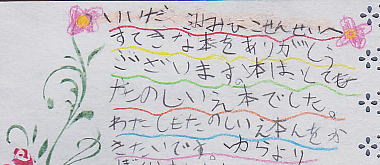 いいだ よみひこせんせいへ
すてきな本をありがとう
ございます。本はとても
たのしいえ本でした。
わたしもたのしいえ本をか
きたいです。ゆうより